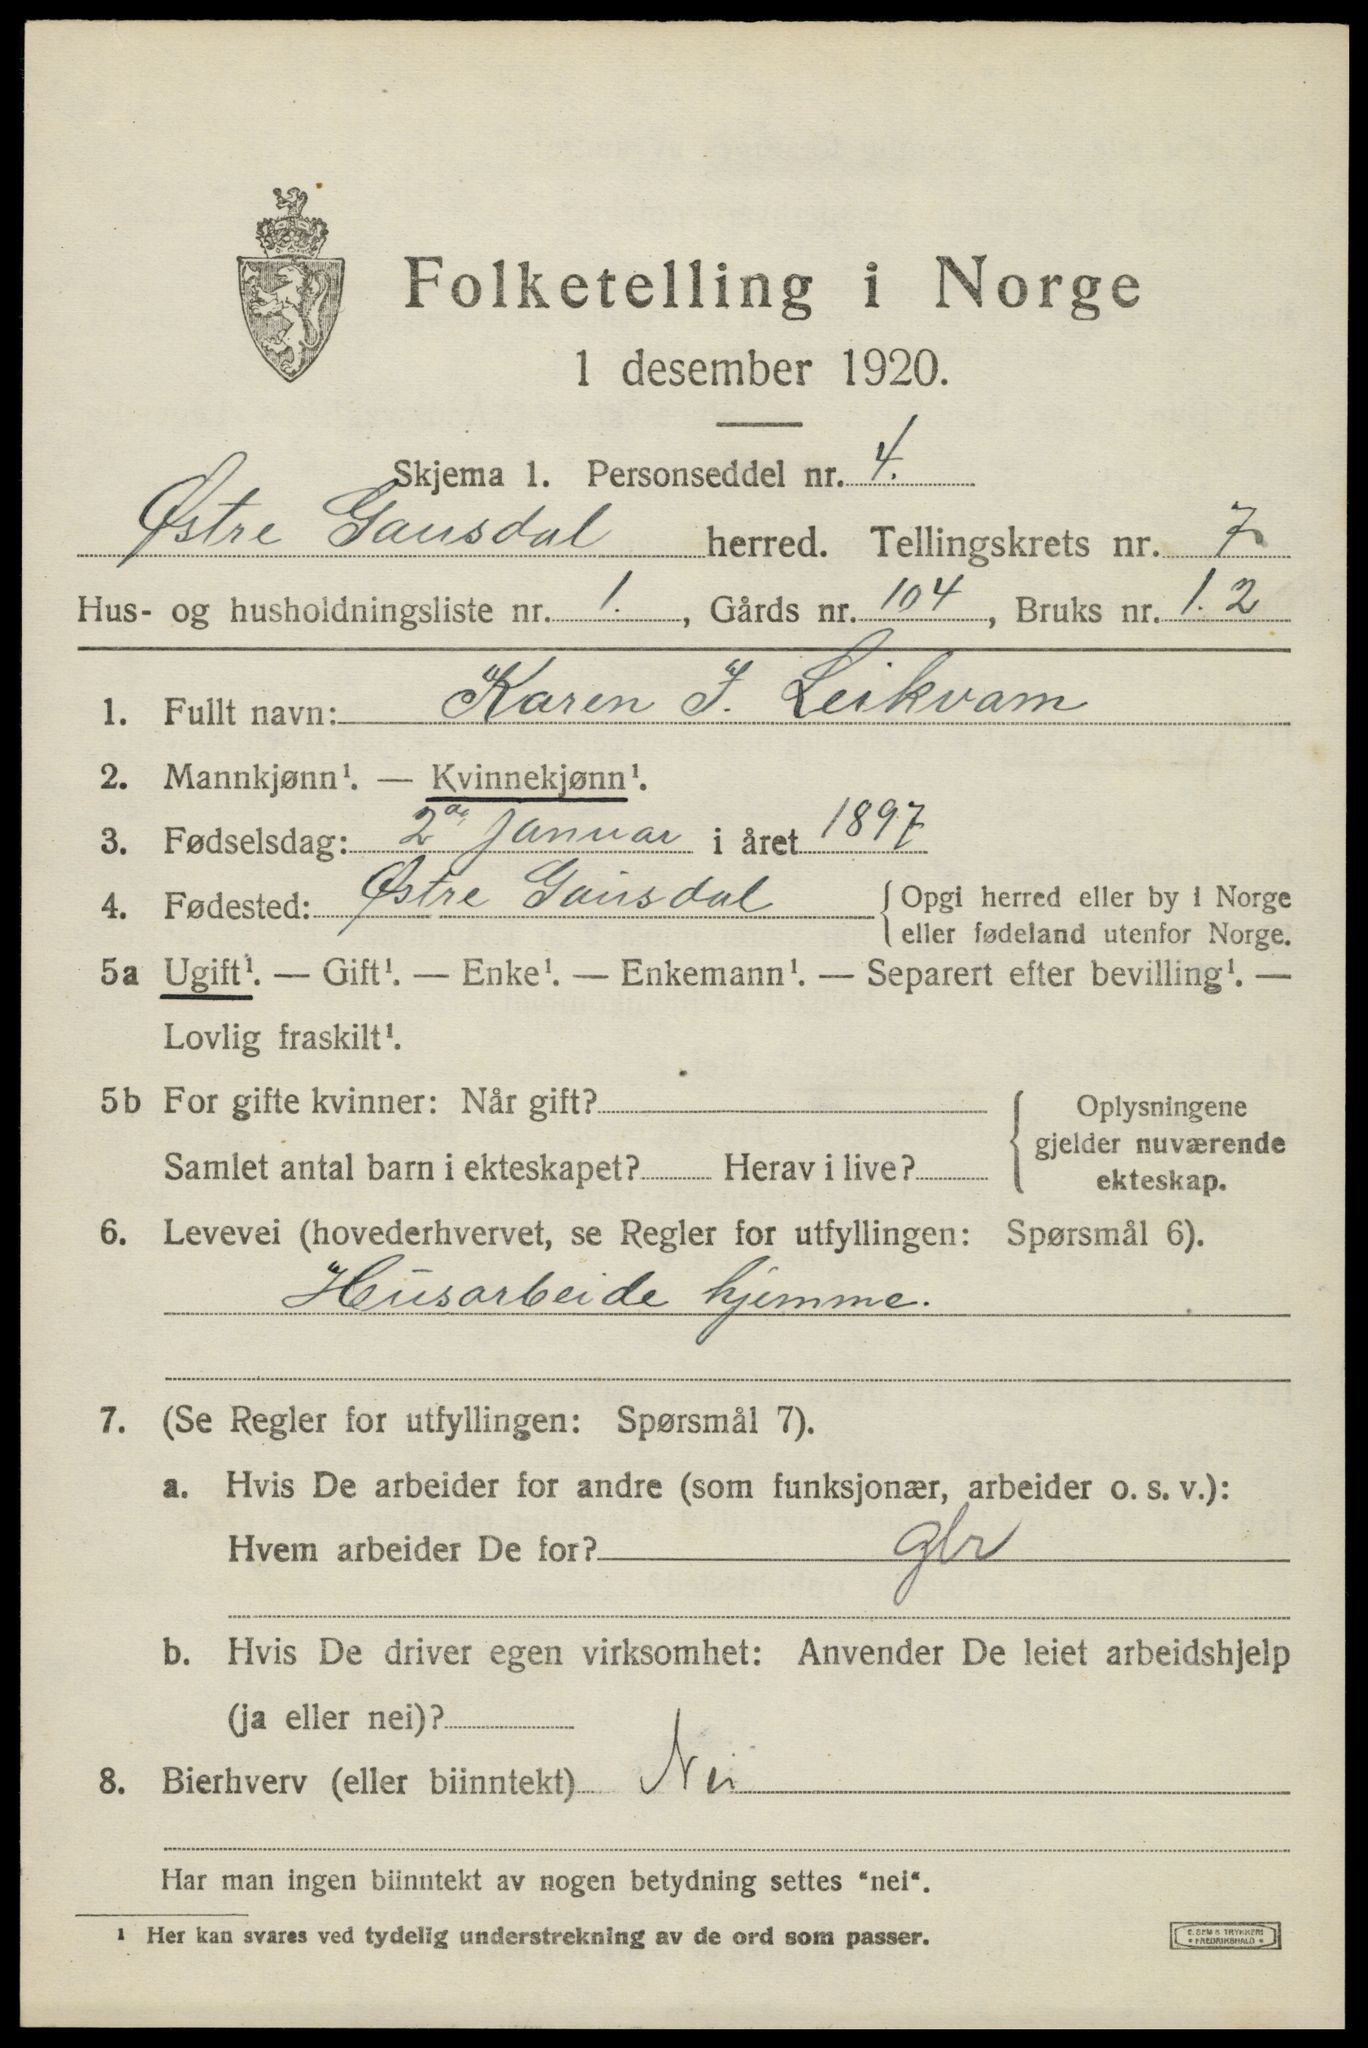 Folketelling i Norge
1 desember 1920.
Skjema 1. Personseddel nr. 4.
Østre Gausdal herred. Tellingskrets nr. 7
Hus- og husholdningsliste nr. 1., Gårds nr. 104, Bruks nr. 1.2
1. Fullt navn: Karen J. Leikvam
2. Mannkjønn¹. — Kvinnekjønn¹.
3. Fødselsdag: 2 januar i året 1897
4. Fødested: Østre Gausdal {Opgi herred eller by i Norge
eller fødeland utenfor Norge.
5a Ugift¹. — Gift¹. — Enke¹. — Enkemann¹. — Separert efter bevilling¹. —
Lovlig fraskilt¹.
5b For gifte kvinner: Når gift?
Samlet antal barn i ekteskapet? Herav i live?
{ Oplysningene
gjelder nuværende
ekteskap.
6. Levevei (hovederhvervet, se Regler for utfyllingen: Spørsmål 6).
Husarbeide hjemme.
7. (Se Regler for utfyllingen: Spørsmål 7).
a. Hvis De arbeider for andre (som funksjonær, arbeider o. s. v.):
Hvem arbeider De for?
b. Hvis De driver egen virksomhet: Anvender De leiet arbeidshjelp
(ja eller nei)?
8. Bierhverv (eller biinntekt) Nei
Har man ingen biinntekt av nogen betydning settes “nei“.
¹ Her kan svares ved tydelig understrekning av de ord som passer.